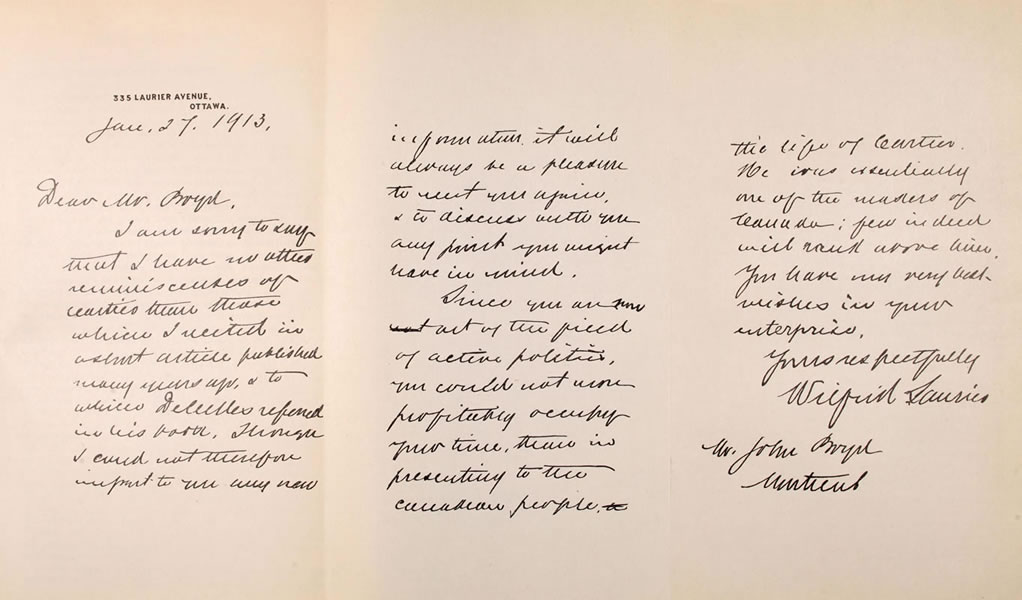 335 LAURIER AVENUE,
OTTAWA.
Jan. 27. 1913.
Dear Mr. Boyd,
I am sorry to say
that I have no other
reminiscenses of
Cartier than those
which I recited in
a short article published
many years ago, & to
which DeCelles referred
in his book. Though
I could not therefore
impart to you any new
information, it will
always be a pleasure
to meet you again,
& to discuss with you
any point you might
have in mind.
Since you are now
out of the field
of active politics,
you could not more
profitably occupy
your time, than in
presenting to the
Canadian people,
the life of Cartier.
He was essentially
one of the makers of
Canada; few indeed
will rank above him.
You have my very best
wishes in your
enterprise.
Yours respectfully
Wilfrid Laurier
Mr. John Boyd
Montreal